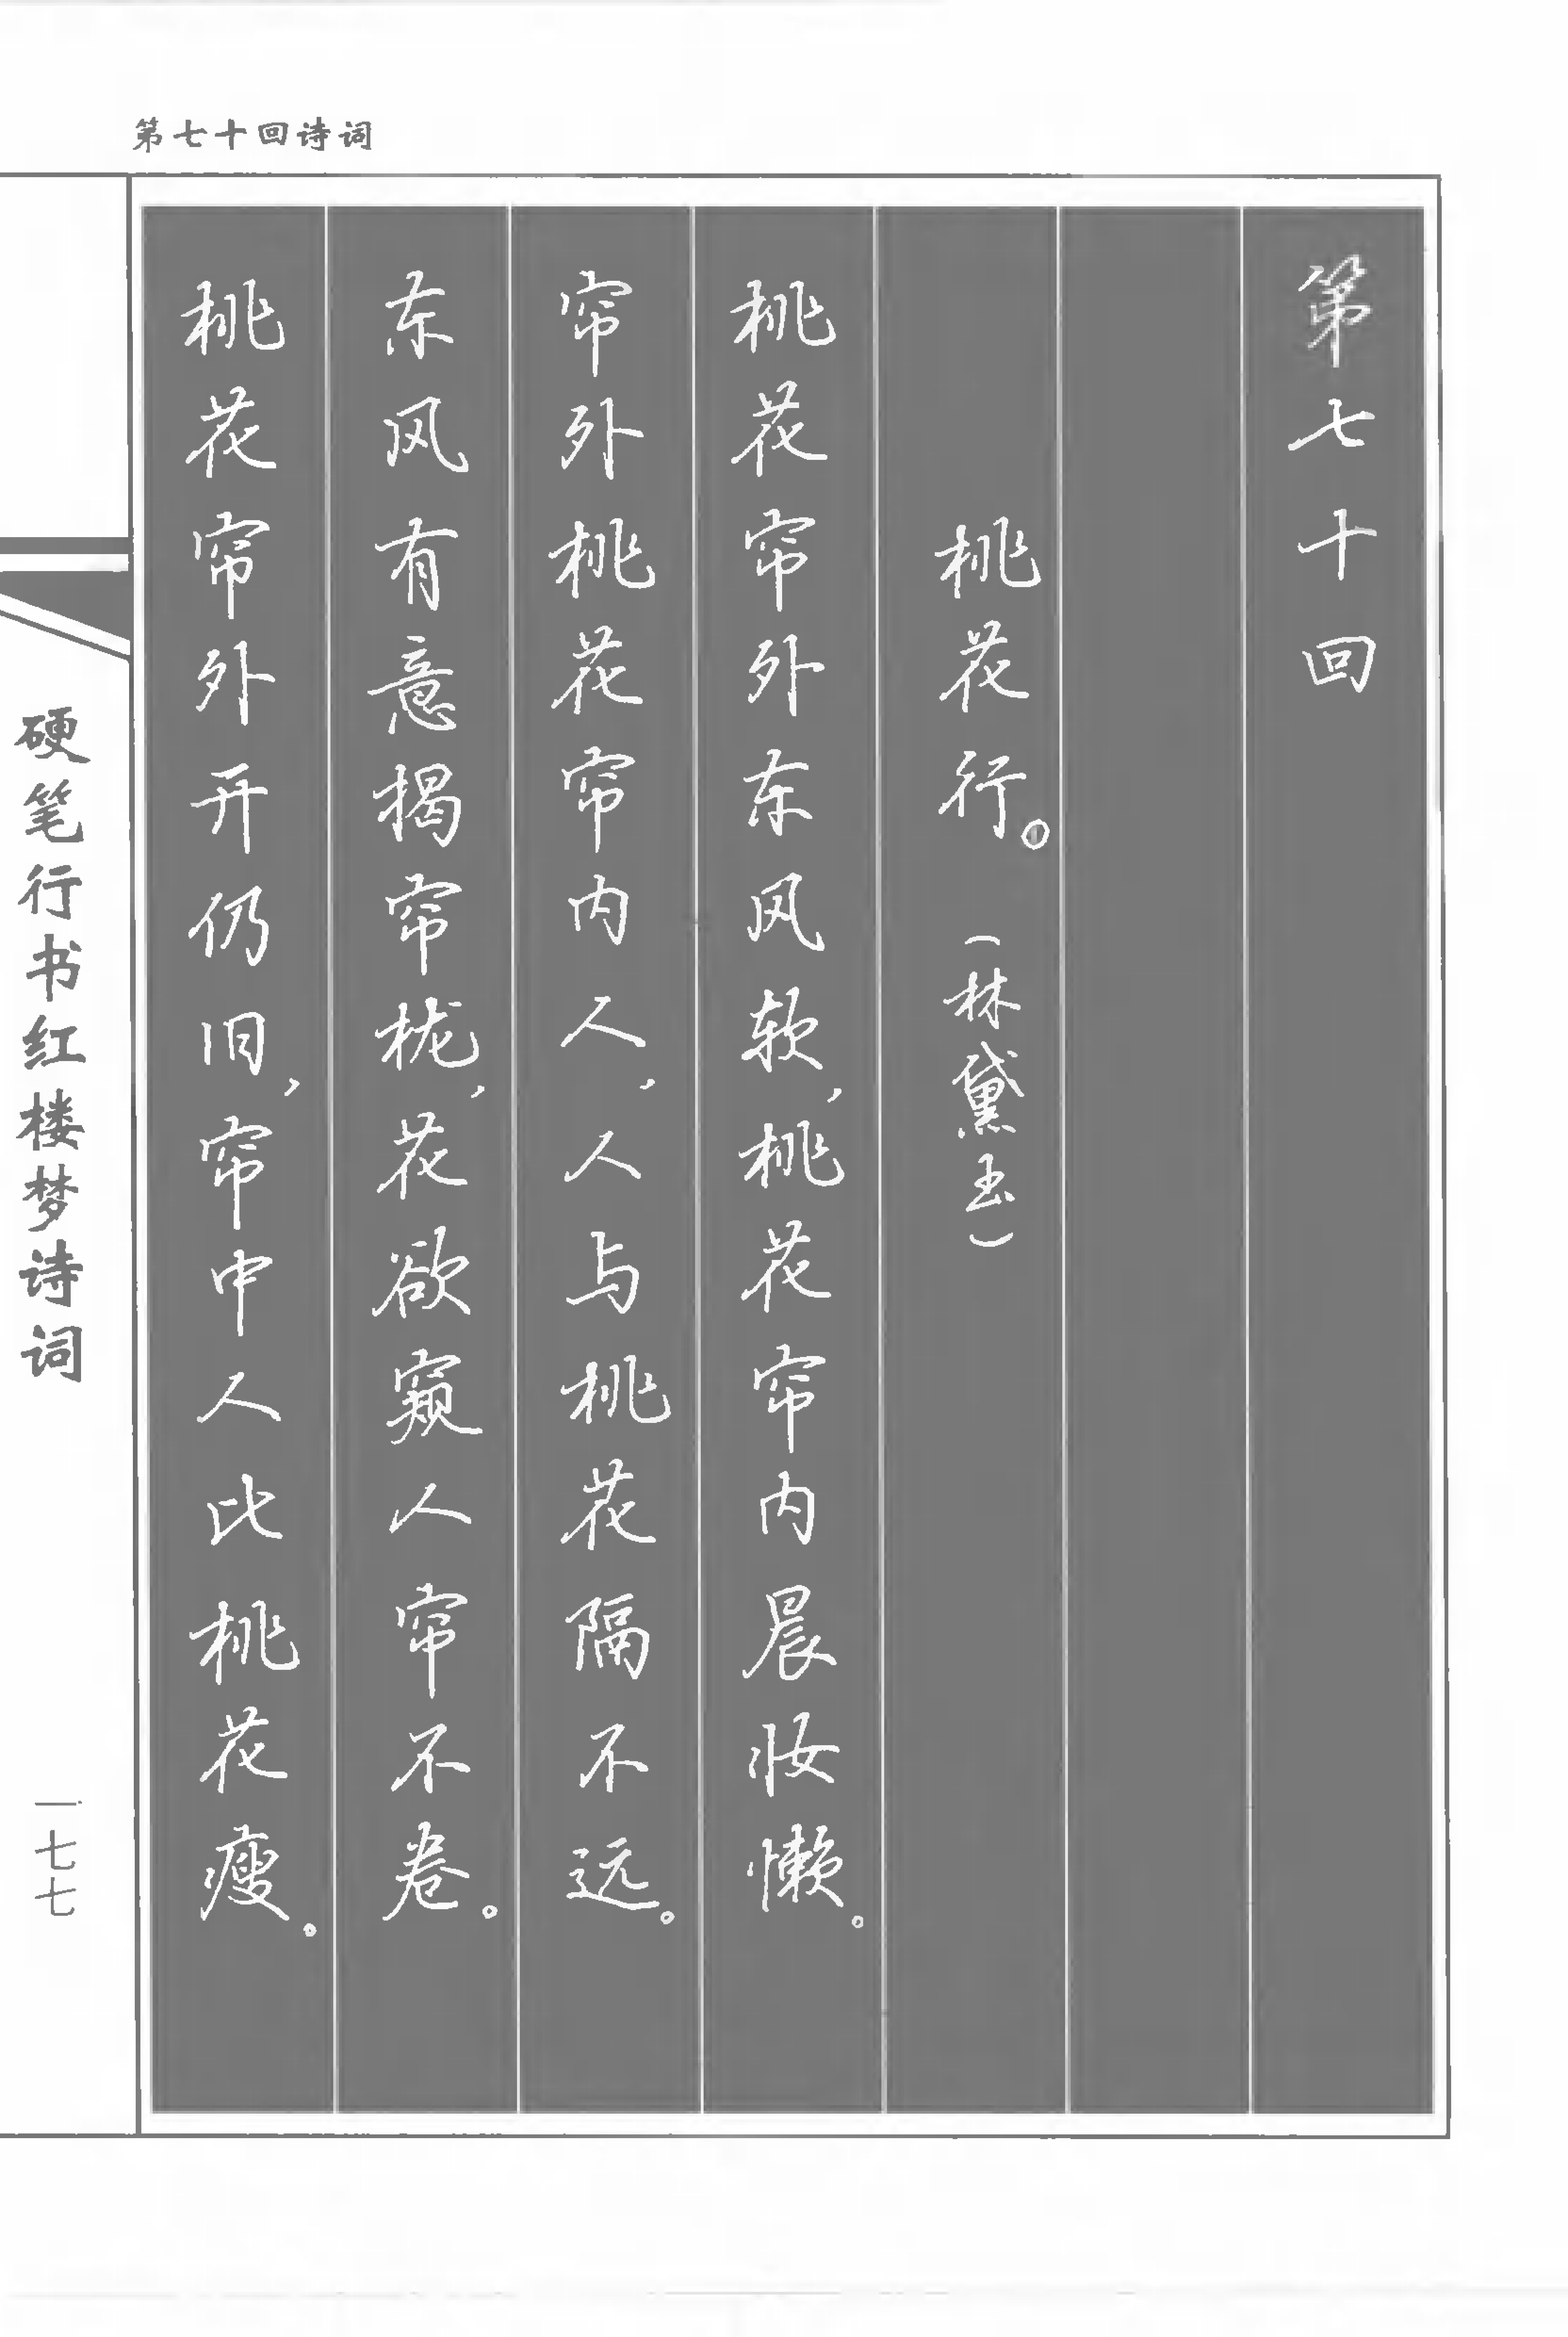 第七十回诗词
第七十回
桃花行。（林黛玉）
桃花帘外东风软，桃花帘内晨妆懒。
帘外桃花帘内人，人与桃花隔不远。
东风有意揭帘栊，花欲窥人帘不卷。
桃花帘外开仍旧，帘中人比桃花瘦。
硬笔行书红楼梦诗词
一七七